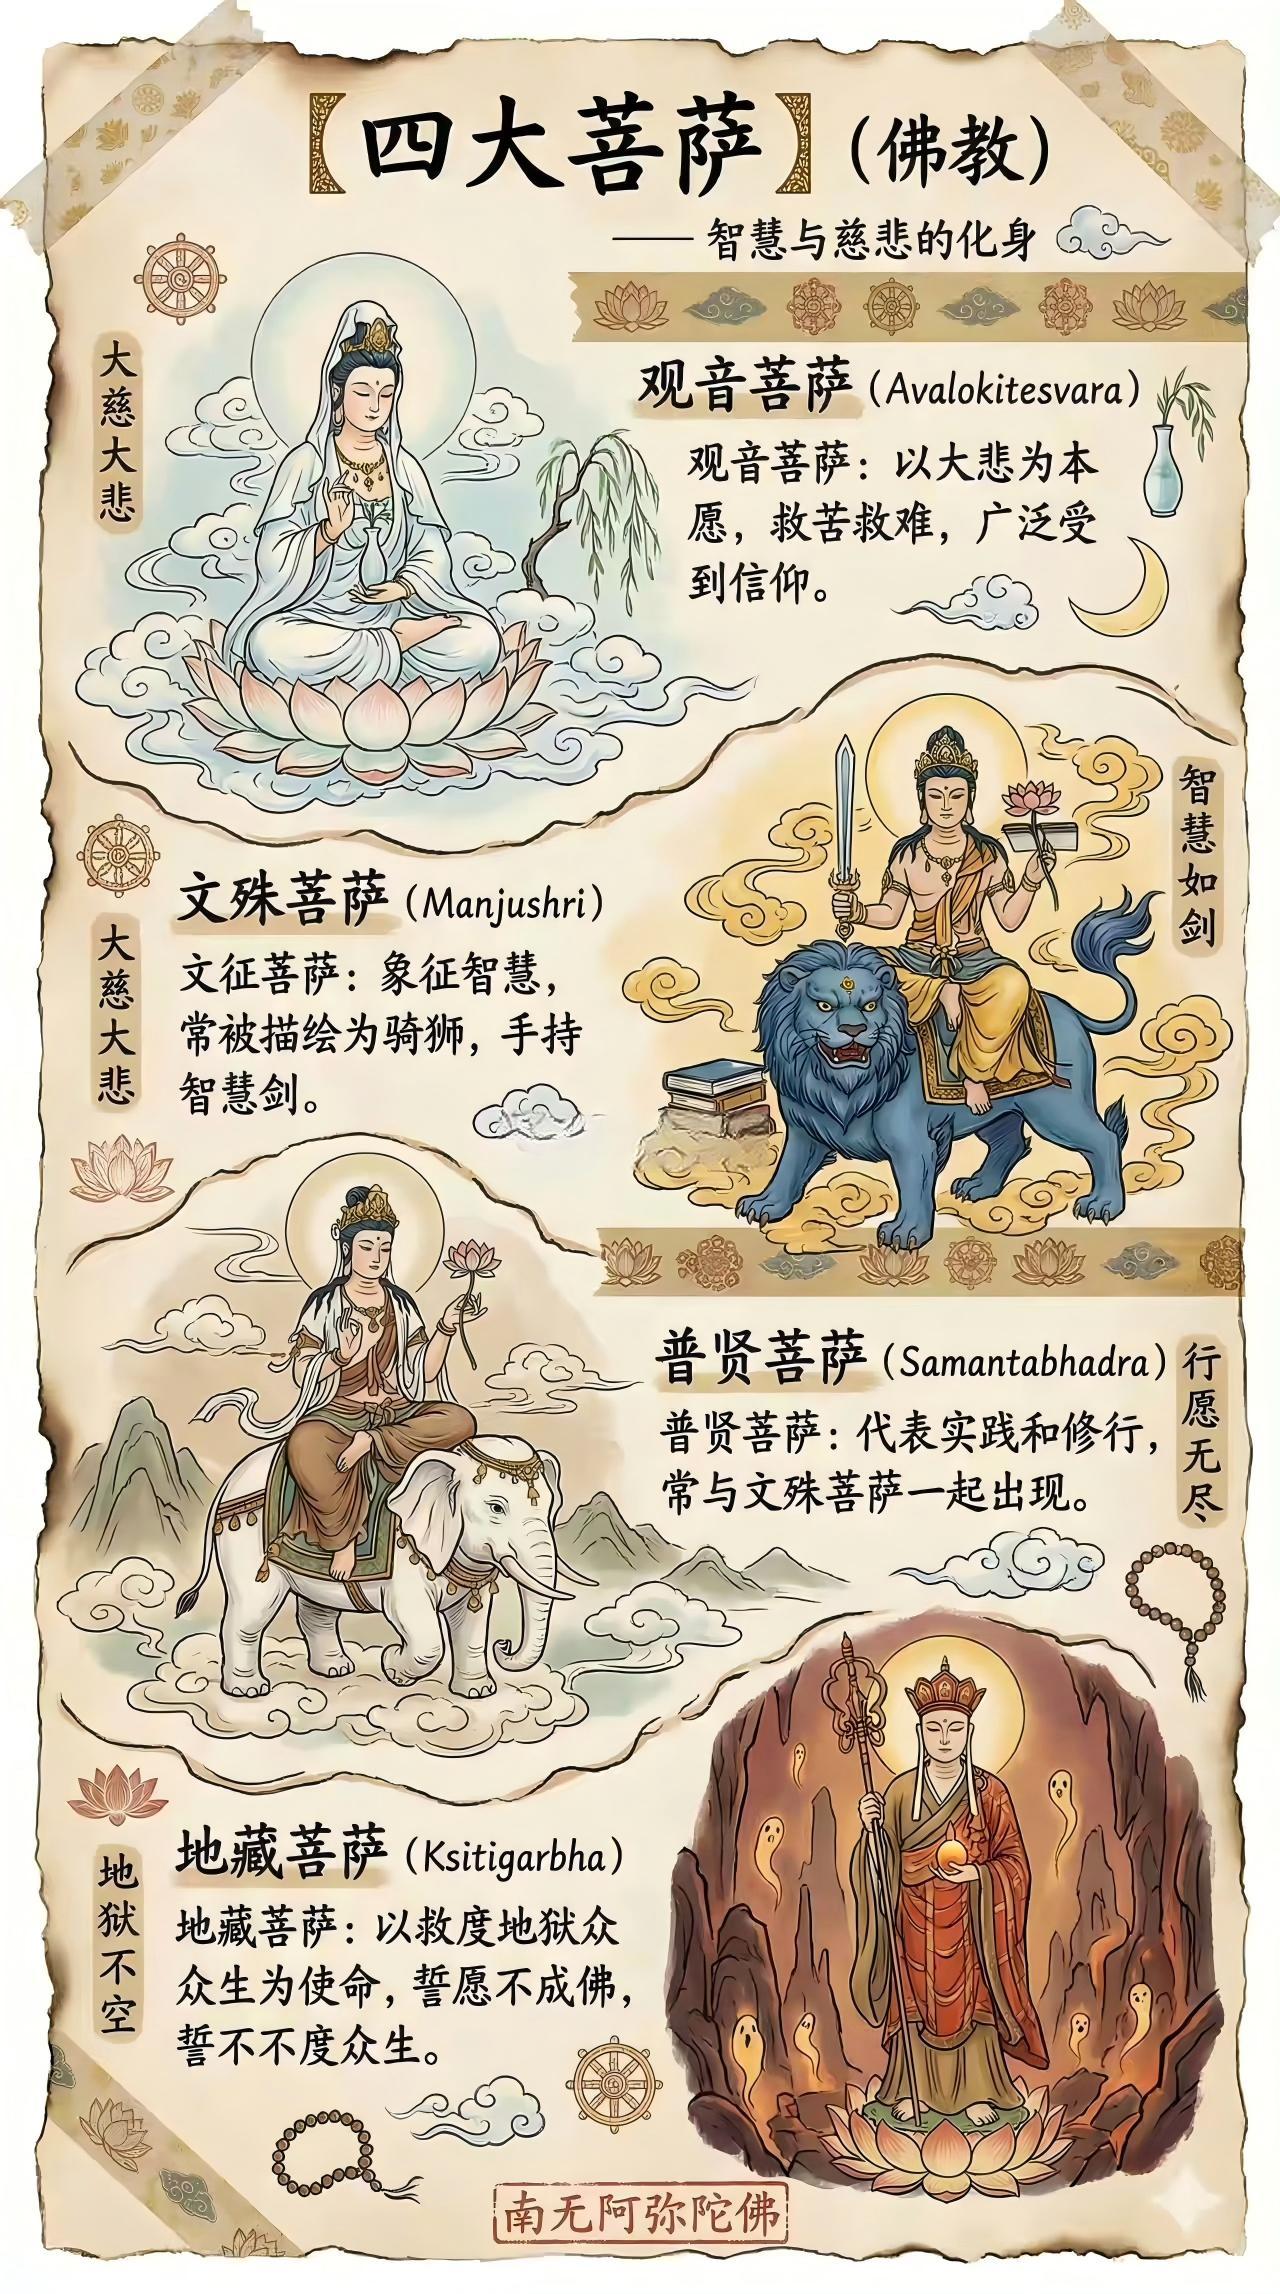 【四大菩萨】(佛教)
—— 智慧与慈悲的化身
大慈大悲
观音菩萨 (Avalokitesvara)
观音菩萨：以大悲为本
愿，救苦救难，广泛受
到信仰。
智慧如剑
文殊菩萨 (Manjushri)
大慈大悲
文征菩萨：象征智慧，
常被描绘为骑狮，手持
智慧剑。
普贤菩萨 (Samantabhadra)
行愿无尽
普贤菩萨：代表实践和修行，
常与文殊菩萨一起出现。
地藏菩萨 (Ksitigarbha)
地狱不空
地藏菩萨：以救度地狱众
众生为使命，誓愿不成佛，
誓不不度众生。
南无阿弥陀佛